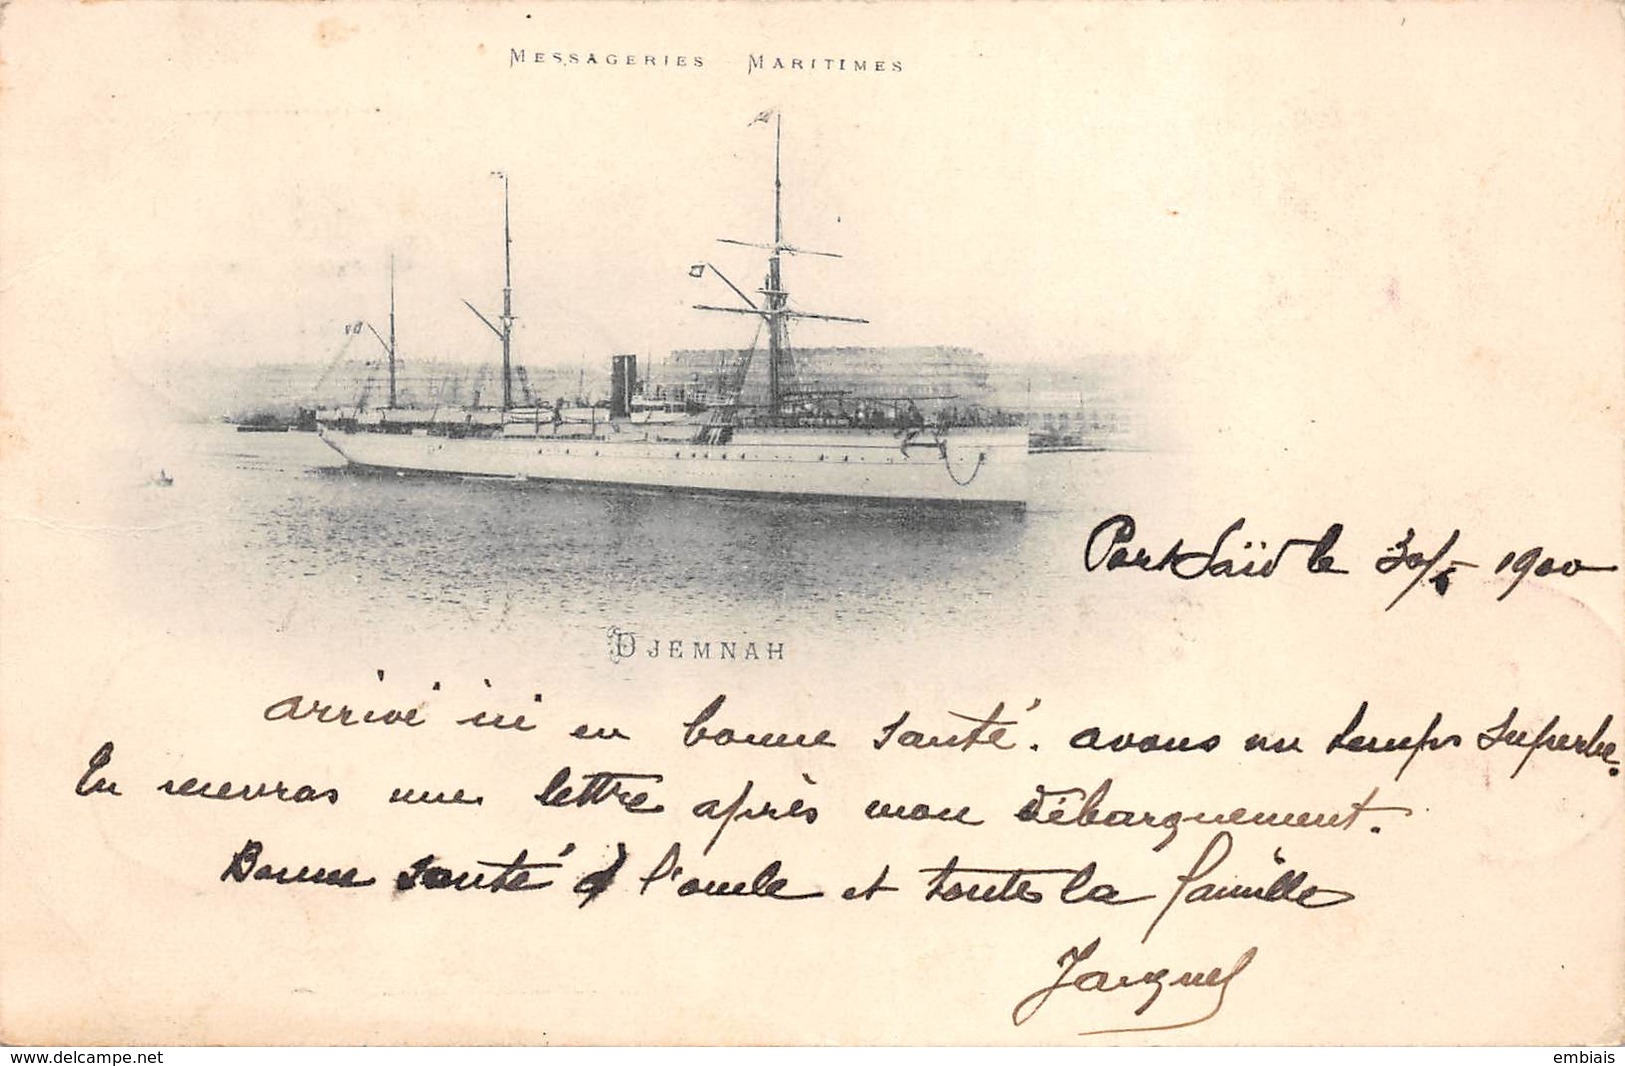 MESSAGERIES MARITIMES
Port Saïd le 30/5 1900
DJEMNAH
arrivé ici en bonne santé. avons un temps superbe.
En recevras une lettre après mon débarquement.
Bonne santé à l'oncle et toute la famille
Jacques
www.delcampe.net
embiais